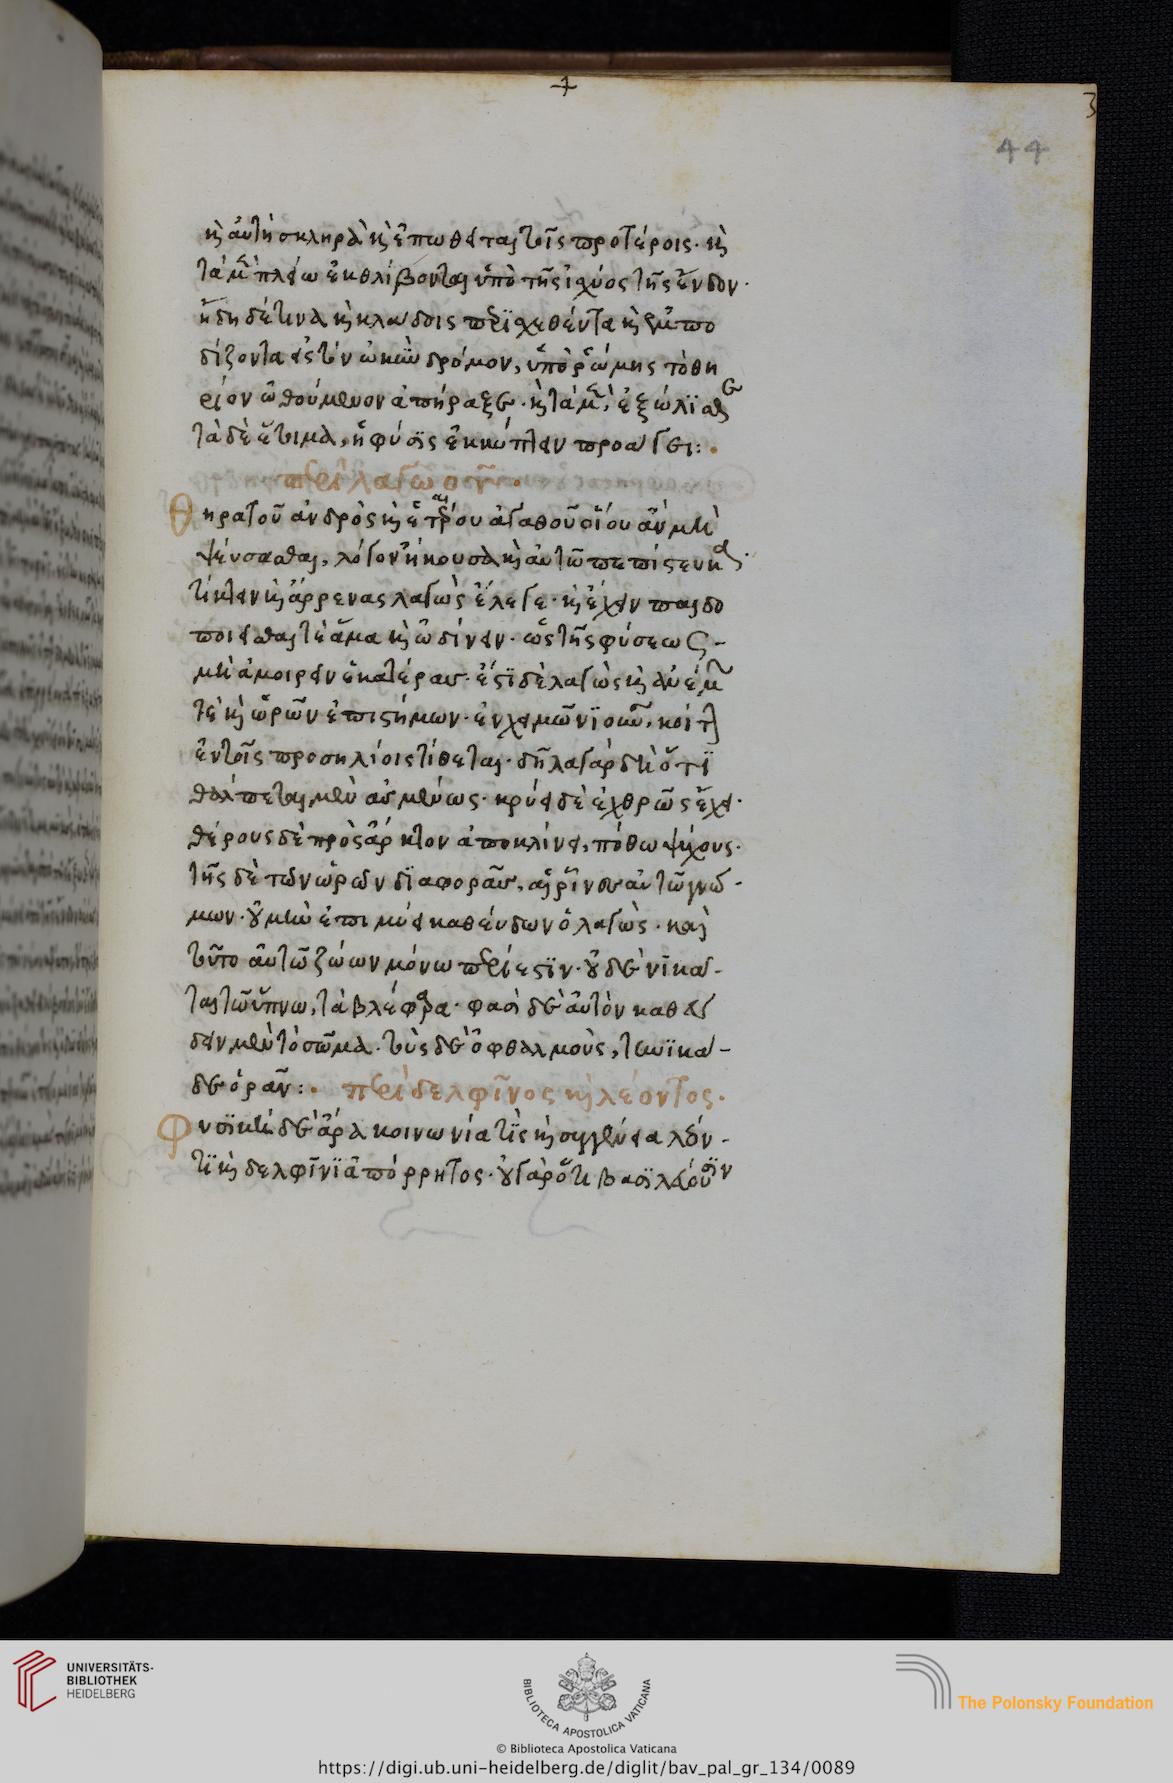 3
44
κὶ αὐτὴ σκληρὰ κὶ ἐπωθεῖται τοῖς προτέροις· κὶ
τὰ μὲν πλείω ἐκθλίβονται ὑπὸ τῆς ἰσχύος τῆς ἔνδον·
ἤδη δέ τινα κὶ κλάδοις περισχεθέντα κὶ ἐμπο
δίζοντα εἰς τὸν ὠκὺν δρόμον, ὑπὸ ῥώμης τὸ θη
ρίον ὠθούμενον ἀπήραξε· κὶ τὰ μὲν, ἐξώλισθε
τὰ δὲ ἕτοιμα, ἡ φύσις ἐκκύπτειν προάγει:·
περὶ λαγωοῦ·
Θηρατοῦ ἀνδρὸς κὶ ἑταίρου ἀγαθοῦ οἵου ἂν μὴ
ψεύσασθαι, λόγον ἤκουσα κὶ αὐτῷ πεπίστευκα·
τίκτειν κὶ ἄρρενας λαγὼς ἔλεγε· κὶ ἔχειν παιδο
ποιεῖσθαι τὲ ἅμα κὶ ὠδίνειν· ὡς τῆς φύσεως
μὴ ἀμοιρεῖν ἑκατέρας· ἔστι δὲ λαγὼς κὶ ἀνέμων
τὲ κὶ ὡρῶν ἐπιστήμων· ἐν χειμῶνι
ἐν τοῖς προσηλίοις τίθεται· δῆλα γὰρ δὴ ὅτι
θάλπεται μὲν ἀσμένως· κρύει δὲ ἐχθρῶς ἔχει·
θέρους δὲ πρὸς ἄρκτον ἀποκλίνει, πόθω ψύχους·
τῆς δὲ τῶν ὡρῶν διαφορᾶς, αἱ ῥῖνες αὐτῷ γνώ-
μων· οὐ μὴν ἐπιμύει καθεύδων ὁ λαγὼς· καὶ
τοῦτο αὐτῷ ζώων μόνω περίεστιν· οὐδὲ νικᾶ-
ται τῷ ὕπνω, τὰ βλέφαρα· φασὶ δὲ αὐτὸν καθεύ
δειν μὲν τὸ σῶμα· τοὺς δὲ ὀφθαλμοὺς, τηνικά-
δε ὁρᾶν:· περὶ δελφῖνος κὶ λέοντος·
Φυσικὴ δὲ ἄρα κοινωνία τὶς κὶ συγγένεια λέον-
τι κὶ δελφῖνι ἀπόρρητος· οὐ γὰρ ὅτι βασιλεύουσιν
UNIVERSITÄTS-
BIBLIOTHEK
HEIDELBERG
BIBLIOTECA APOSTOLICA VATICANA
The Polonsky Foundation
© Biblioteca Apostolica Vaticana
https://digi.ub.uni-heidelberg.de/diglit/bav_pal_gr_134/0089